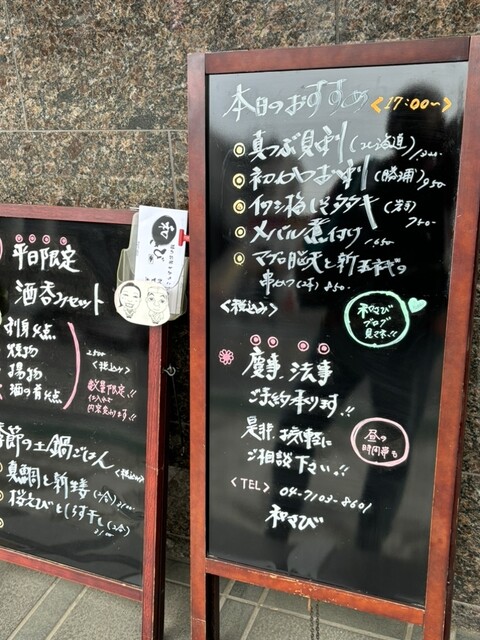 本日のおすすめ <17:00～>
真つぶ貝刺(北海道)
初かつお刺(勝浦)950
イワシ梅しそタタキ
750
メバル煮付け 1650
マグロ脳天と新玉ねぎの
串カツ(2本) 850
<税込み>
和さび
ブログ
見てネ!!
慶事、法事
ご予約承ります!!
是非、お気軽に
ご相談下さい!!
昼の
時間帯も
<TEL> 04-7103-8601
和さび
平日限定
酒呑みセット
刺身
焼物
揚物
酒の肴
2500
<税込み>
数量限定!!
季節の土鍋ごはん
<税込み>
真鯛と新
桜えびとしらす干し(2合)